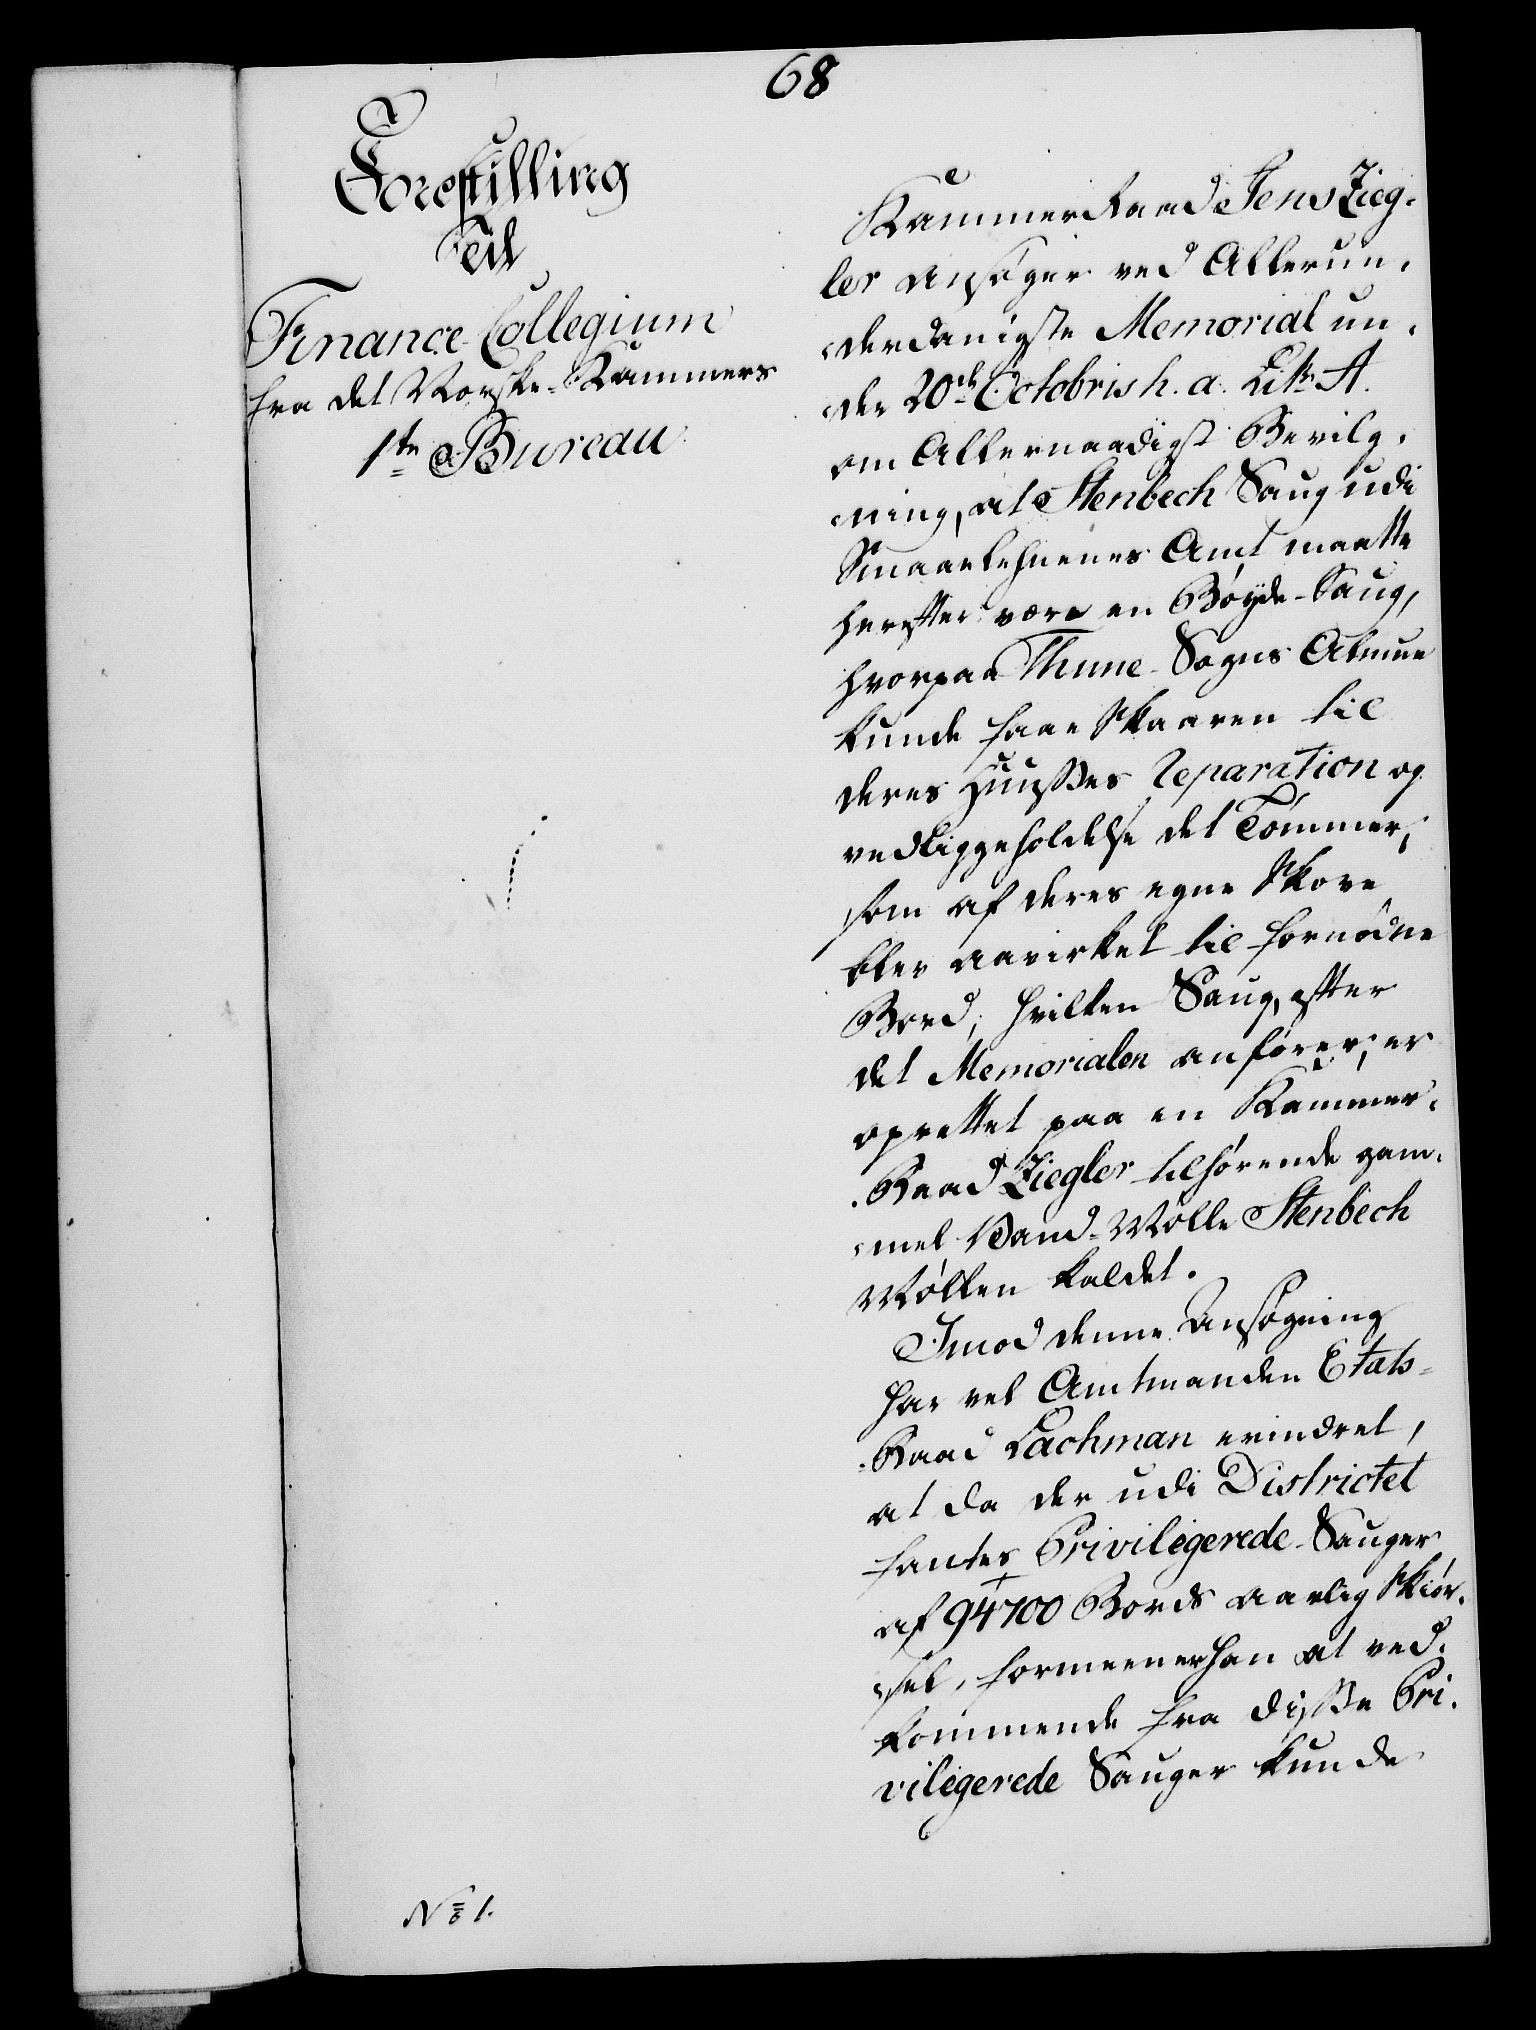 68
Forestilling
Til
Finance-Collegium
fra det Norske-Kammers
1ste Bureau
KammerRaad Jens Zieg-
ler ansøger ved Allerun-
derdanigste Memorial un-
der 20de Octobris h. a. Litr. A.
om Allernaadigst Bevilg-
ning, at Stenbech Saug udi
Smaalehnenes Amt maatte
herefter være en Bøyde-Saug,
hvorpaa Thune-Sogns Almue
kunde faae skaaren til
deres Huusses Reparation og
vedliggeholdelse det Tømmer,
som af deres egne Skove
blev aavirket til fornødne
Bord, hvilken Saug, efter
det Memorialen anfører, er
oprettet paa en Kammer-
Raad Ziegler tilhørende gam-
mel Vand-Mølle Stenbech
Møllen kaldet.
Imod denne Ansøgning
har vel Amtmanden Etats-
Raad Lachman erindret,
at da der udi Districtet
fantes Priviligerede-Sauger
af 94700 Bords aarlig Skiør-
sel, formeener han at ved-
kommende fra disse Pri-
viligerede Sauger kunde
No 1.